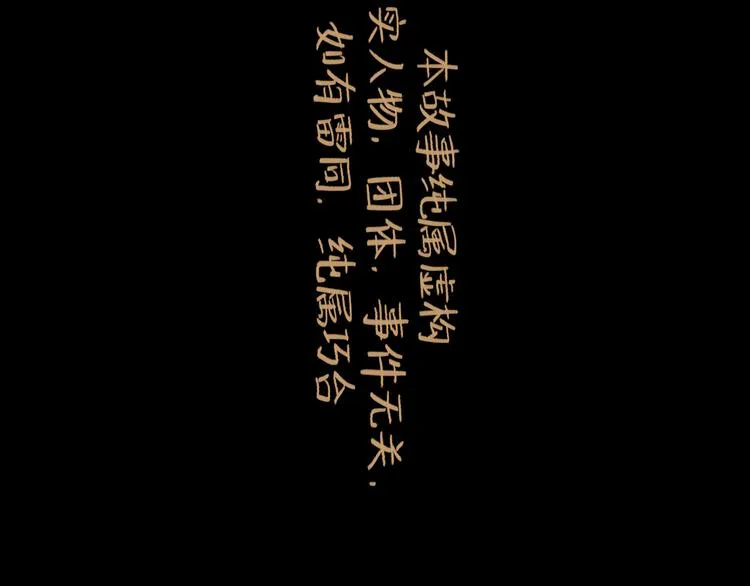 本故事纯属虚构
实人物，团体，事件无关，
如有雷同，纯属巧合